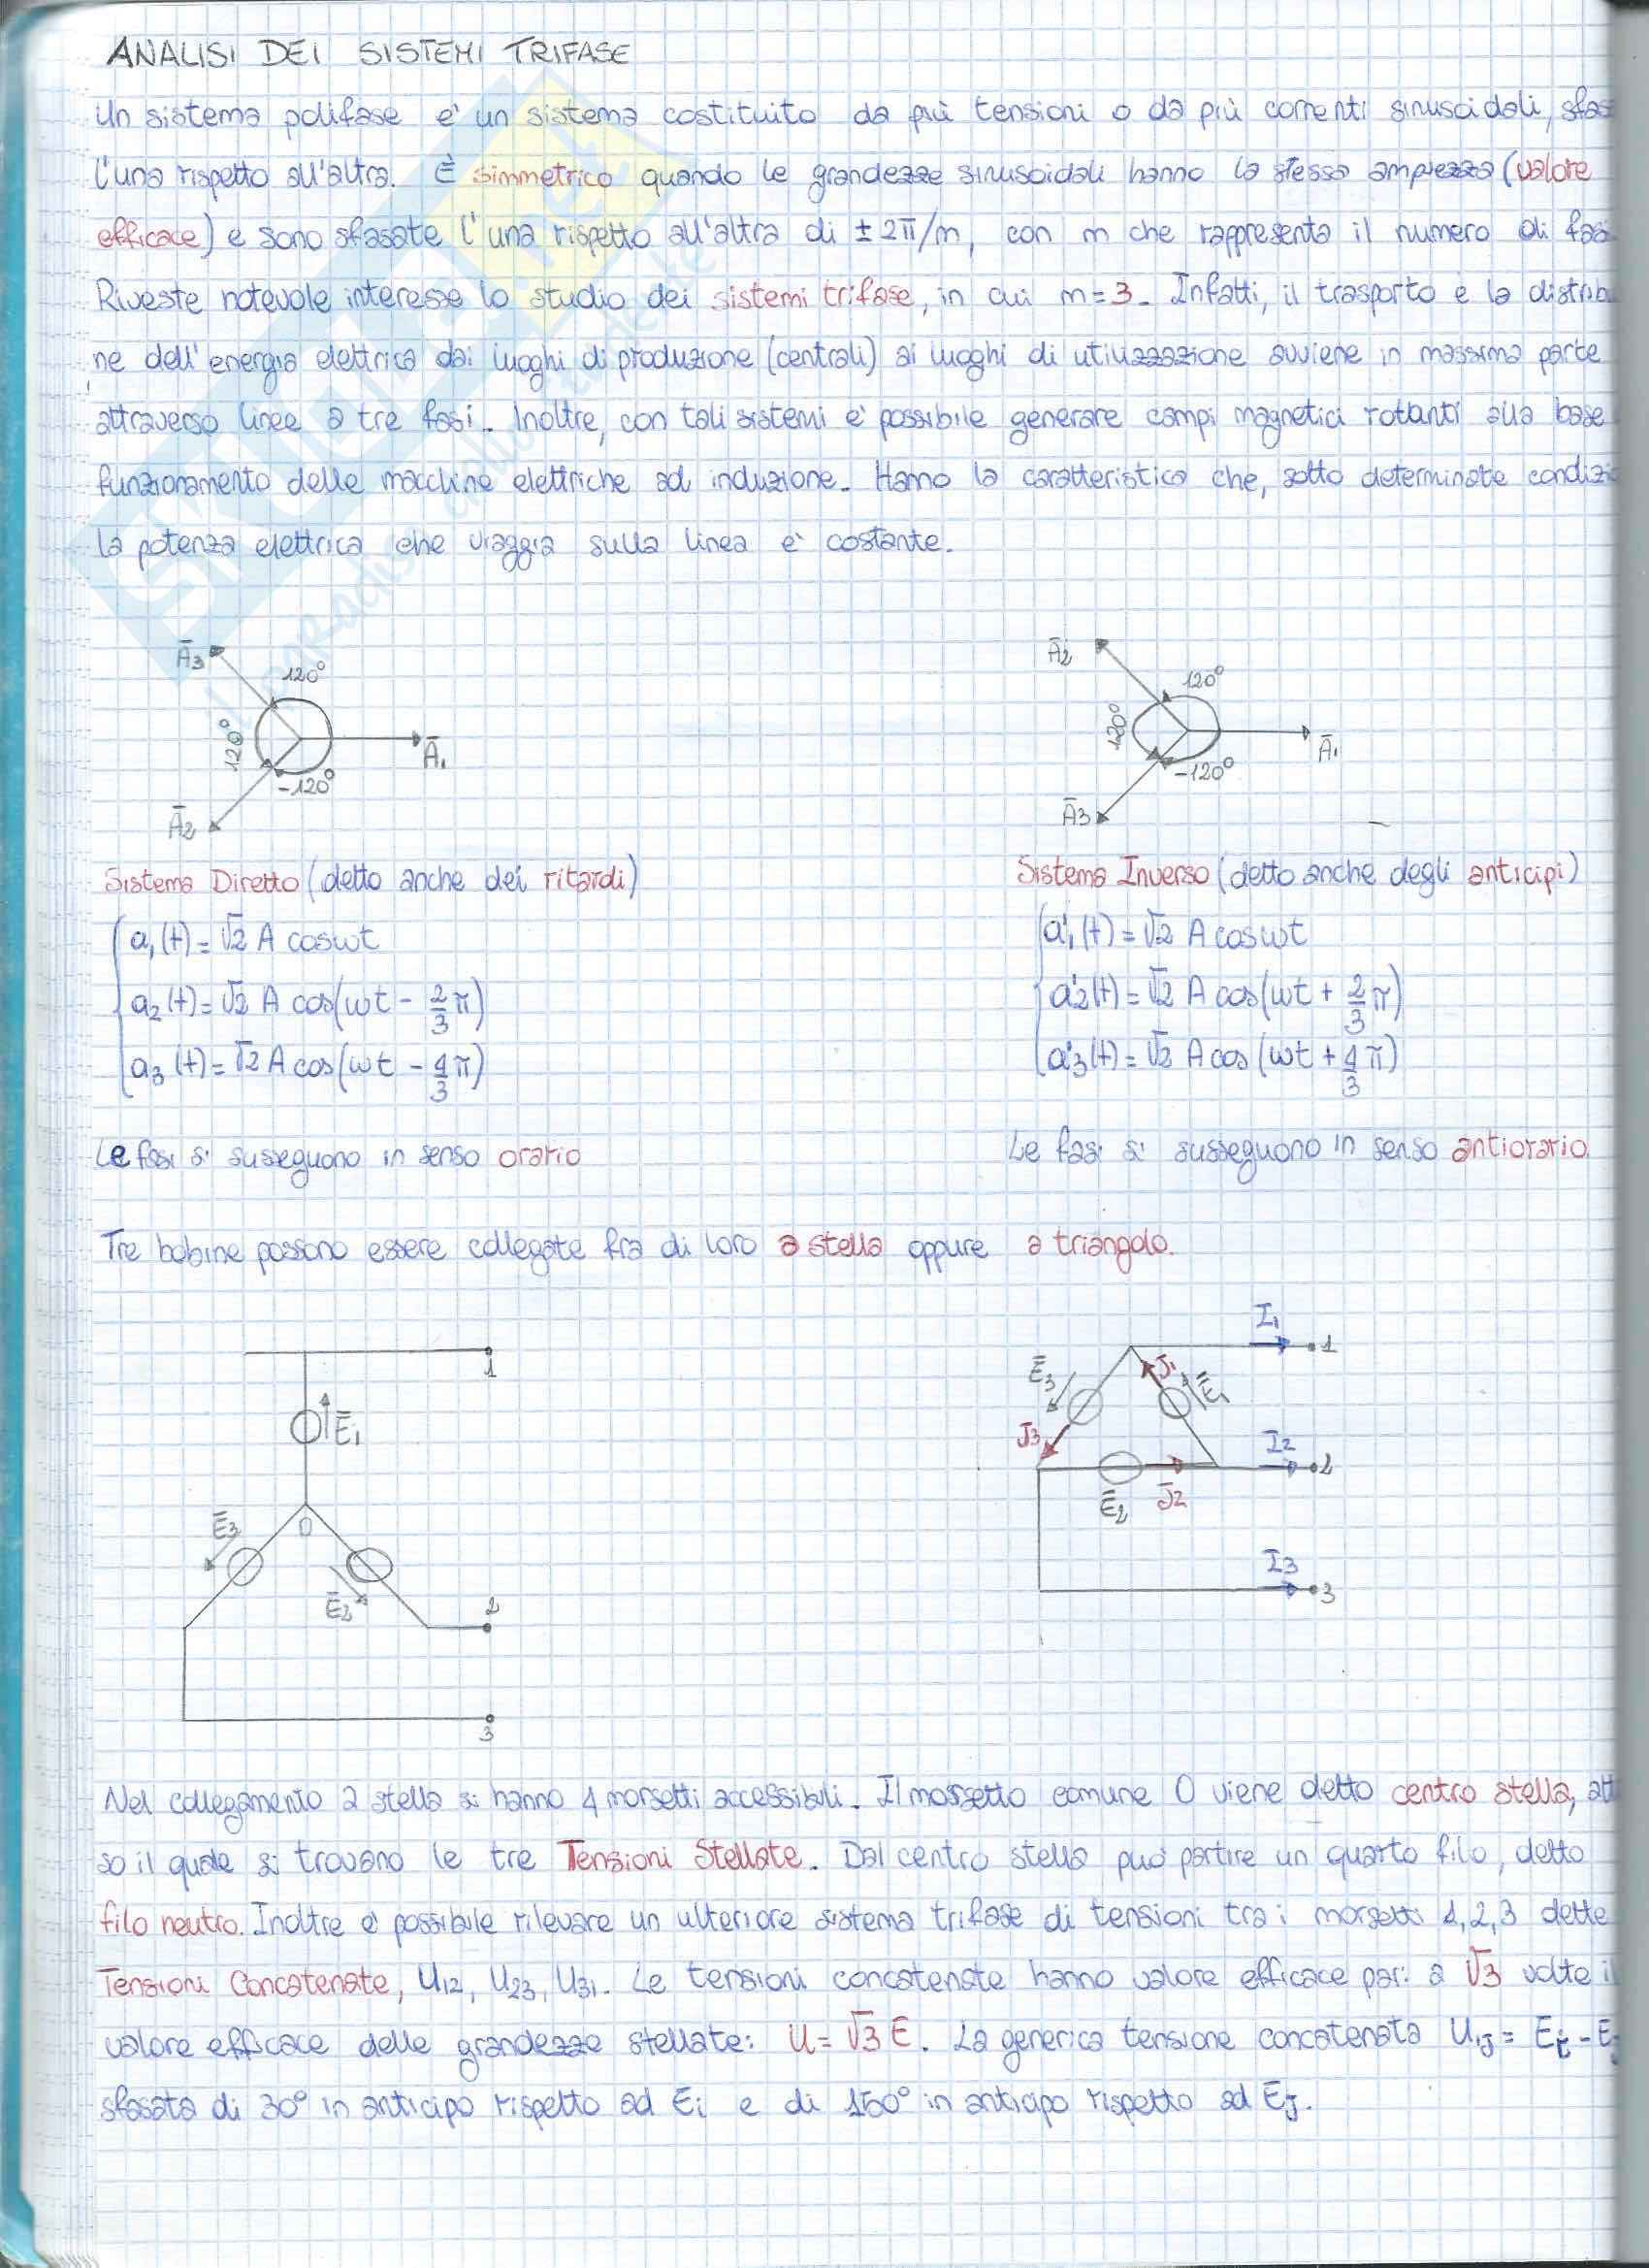 ANALISI DEI SISTEMI TRIFASE
Un sistema polifase e' un sistema costituito da più tensioni o da più correnti sinusoidali, sfas
l'una rispetto all'altra. È simmetrico quando le grandezze sinusoidali hanno la stessa ampiezza (valore
efficace) e sono sfasate l'una rispetto all'altra di ± 2π/m, con m che rappresenta il numero di fasi
Riveste notevole interesse lo studio dei sistemi trifase, in cui m=3. Infatti, il trasporto e la distrib
ne dell'energia elettrica dai luoghi di produzione (centrali) ai luoghi di utilizzazione avviene in massima parte
attraverso linee a tre fasi. Inoltre, con tali sistemi e' possibile generare campi magnetici rotanti alla base
funzionamento delle macchine elettriche ad induzione. Hanno la caratteristica che, sotto determinate condizi
la potenza elettrica che viaggia sulla linea e' costante.
Ā3 120° 120° -120° Ā1 Ā2
Ā2 120° 120° -120° Ā1 Ā3
Sistema Diretto (detto anche dei ritardi)
Sistema Inverso (detto anche degli anticipi)
a1(t) = √2 A cosωt
a2(t) = √2 A cos(ωt - 2/3 π)
a3(t) = √2 A cos(ωt - 4/3 π)
a'1(t) = √2 A cosωt
a'2(t) = √2 A cos(ωt + 2/3 π)
a'3(t) = √2 A cos(ωt + 4/3 π)
Le fasi si susseguono in senso orario
Le fasi si susseguono in senso antiorario.
Tre bobine possono essere collegate fra di loro a stella oppure a triangolo.
1
Ē1
Ē3
0
Ē2
2
3
I1
1
Ē3
J1
Ē1
J3
I2
2
Ē2
J2
I3
3
Nel collegamento a stella si hanno 4 morsetti accessibili. Il morsetto comune O viene detto centro stella, att
so il quale si trovano le tre Tensioni Stellate. Dal centro stella può partire un quarto filo, detto
filo neutro. Inoltre e' possibile rilevare un ulteriore sistema trifase di tensioni tra i morsetti 1,2,3 dette
Tensioni Concatenate, U12, U23, U31. Le tensioni concatenate hanno valore efficace pari a √3 volte il
valore efficace delle grandezze stellate: U = √3 E. La generica tensione concatenata Uij = Ei - E
sfasata di 30° in anticipo rispetto ad Ei e di 150° in anticipo rispetto ad Ej.